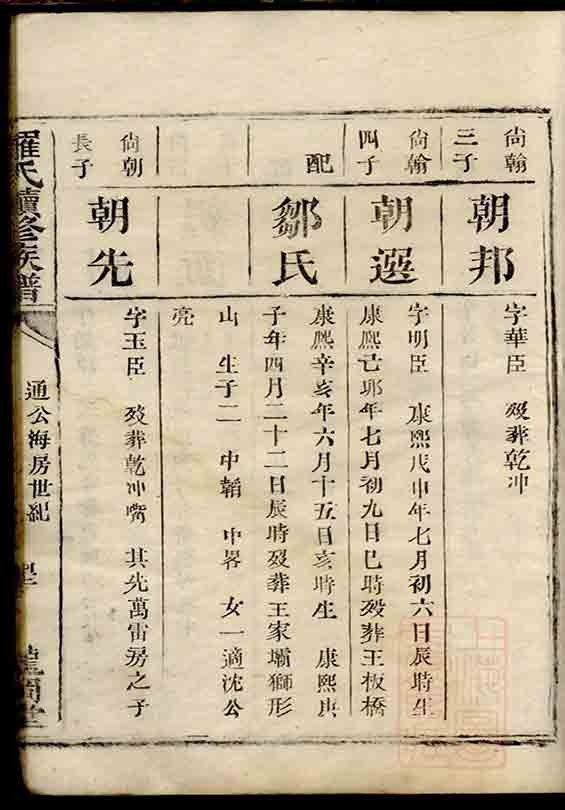 尙翰三子
朝邦
字華臣 歿葬乾冲
尙翰四子
朝選
字明臣 康熙戊申年七月初六日辰時生
康熙己卯年七月初九日巳時歿葬王板橋
配
鄒氏
康熙辛亥年六月十五日亥時生 康熙庚
子年四月二十二日辰時歿葬王家壩獅形
山 生子二 中韜 中畧 女一適沈公
亮
尙朝長子
朝先
字玉臣 歿葬乾冲嘴 其先萬雷房之子
羅氏續修族譜
通公海房世紀